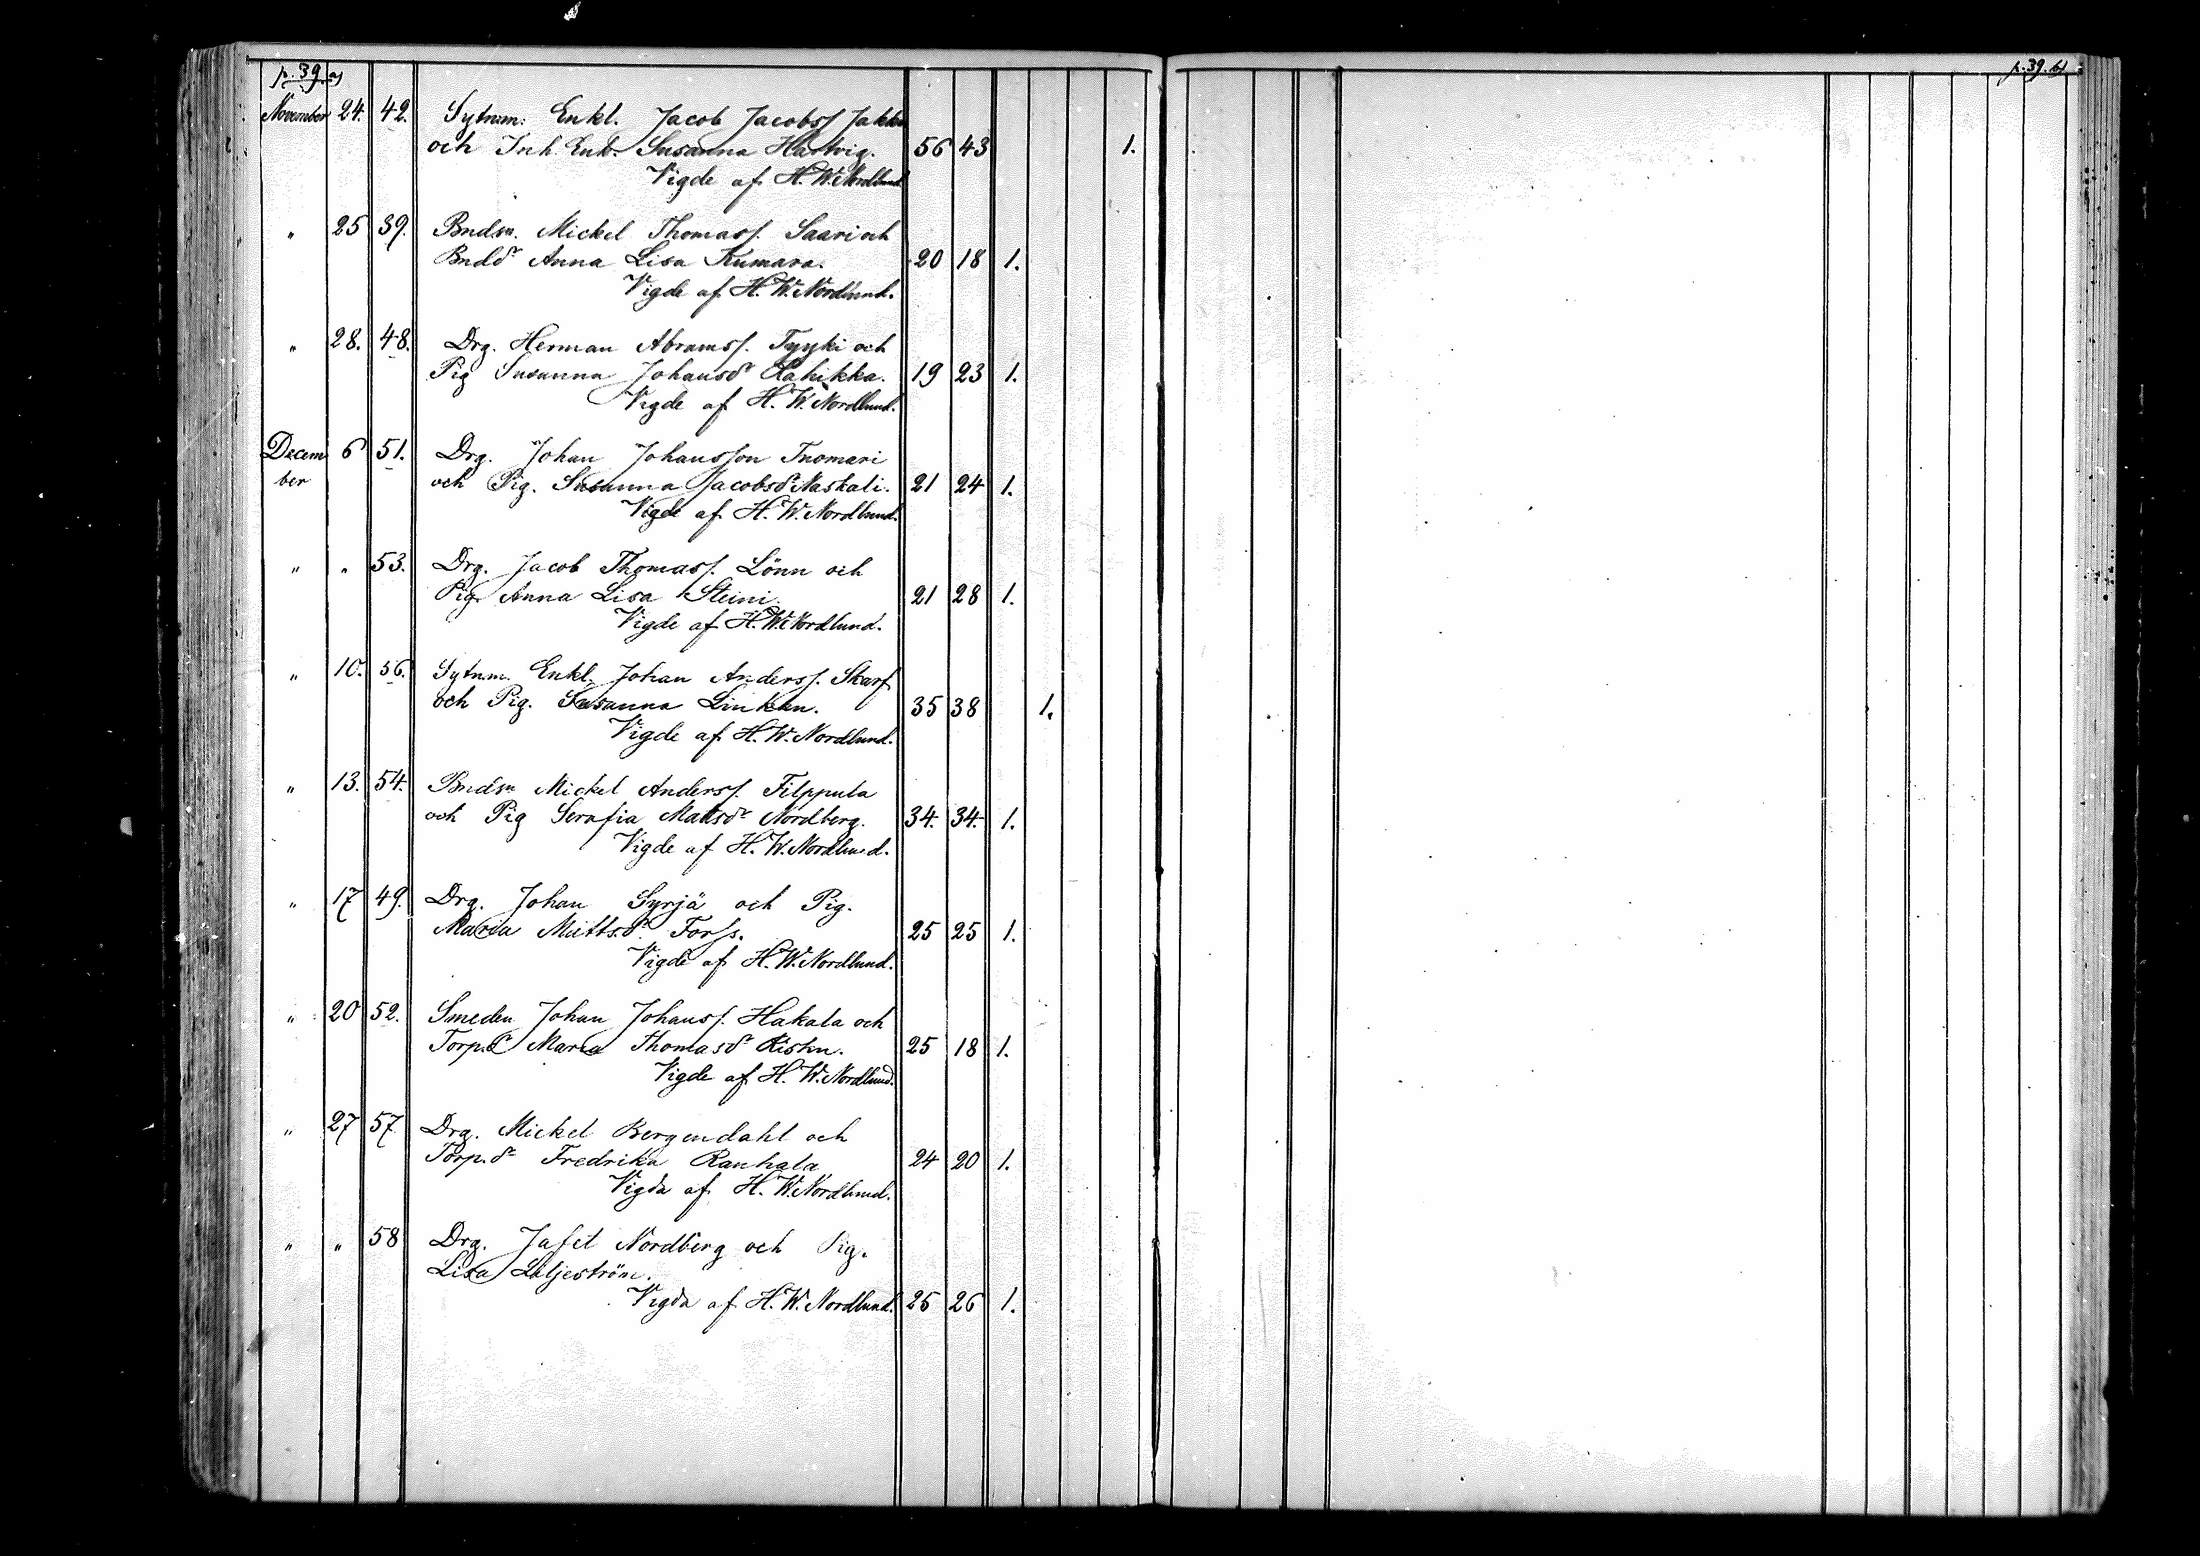 p. 39. a)
p. 39. b)
November 24. 42. Sytnm: Enkl. Jacob Jacobss Jakku
och Inh. Enk. Susanna Hartvig. 56 43 1.
Vigde af H. W. Nordlund
" 25 39. Bndsn. Mickel Thomass. Saari och
Bndd.r Anna Lisa Kumara. 20 18 1.
Vigde af H. W. Nordlund.
" 28. 48. Drg. Herman Abramss. Tyyki och
Pig Susanna Johansd.r Rahikka. 19 23 1.
Vigde af H. W. Nordlund.
Decem 6 51. Drg. Johan Johansson Tuomari
ber och Pig. Susanna Jacobsd.r Naskali. 21 24 1.
Vigde af H. W. Nordlund.
" " 53. Drg. Jacob Thomass. Lönn och
Pig. Anna Lisa Steini. 21 28 1.
Vigde af H. W. Nordlund.
" 10. 56. Sytnm. Enkl. Johan Anderss. Skarf
och Pig. Susanna Linkan. 35 38 1.
Vigde af H. W. Nordlund.
" 13. 54. Bndsn Mickel Anderss. Filppula
och Pig Serafia Mattsd.r Nordberg. 34. 34. 1.
Vigde af H. W. Nordlund.
" 17 49. Drg. Johan Syrjä och Pig.
Maria Mattsd.r Forss. 25 25 1.
Vigde af H. W. Nordlund.
" 20 52. Smeden Johan Johanss. Hakala och
Torp.d Maria Thomasd.r Risku. 25 18 1.
Vigde af H. W. Nordlund.
" 27 57 Drg. Mickel Bergendahl och
Torp.d.r Fredrika Rauhala 24 20 1.
Vigda af H. W. Nordlund.
" " 58 Drg. Jafet Nordberg och Pig.
Lisa Liljeström.
Vigda af H. W. Nordlund. 25 26 1.